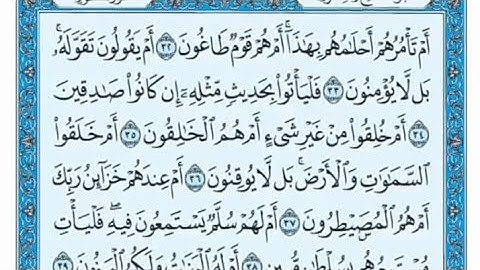 أَمْ تَأْمُرُهُمْ أَحْلَٰمُهُم بِهَٰذَآ ۚ أَمْ هُمْ قَوْمٌ طَاغُونَ ٣٢ أَمْ يَقُولُونَ تَقَوَّلَهُۥ ۚ
بَل لَّا يُؤْمِنُونَ ٣٣ فَلْيَأْتُوا۟ بِحَدِيثٍ مِّثْلِهِۦٓ إِن كَانُوا۟ صَٰدِقِينَ
٣٤ أَمْ خُلِقُوا۟ مِنْ غَيْرِ شَىْءٍ أَمْ هُمُ ٱلْخَٰلِقُونَ ٣٥ أَمْ خَلَقُوا۟
ٱلسَّمَٰوَٰتِ وَٱلْأَرْضَ ۚ بَل لَّا يُوقِنُونَ ٣٦ أَمْ عِندَهُمْ خَزَآئِنُ رَبِّكَ
أَمْ هُمُ ٱلْمُصَۜيْطِرُونَ ٣٧ أَمْ لَهُمْ سُلَّمٌ يَسْتَمِعُونَ فِيهِ ۖ فَلْيَأْتِ
مُسْتَمِعُهُم بِسُلْطَٰنٍ مُّبِينٍ ٣٨ أَمْ لَهُ ٱلْبَنَٰتُ وَلَكُمُ ٱلْبَنُونَ ٣٩